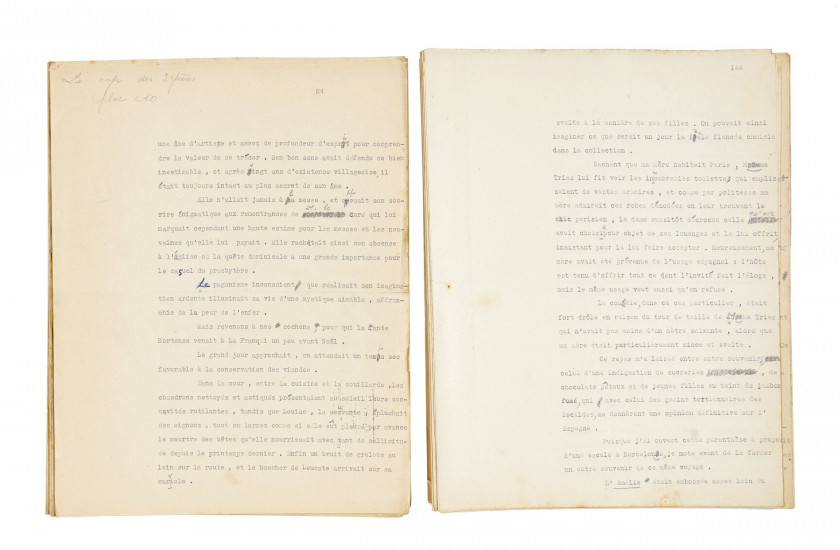 Le cap des 3 frères
84
une âme d'artiste et assez de profondeur d'esprit pour compren-
dre la valeur de ce trésor . Son bon sens avait défendu ce bien
inestimable , et après vingt ans d'existence villageoise, il
était toujours intact au plus secret de son âme .
Elle n'allait jamais à la messe , et opposait son sou-
rire énigmatique aux remontrances de curé qui lui
marquait cependant une haute estime pour les messes et les neu-
vaines qu'elle lui payait . Elle rachetait ainsi son absence
à l'église où la quête dominicale a une grande importance pour
le casuel du presbytère .
Le paganisme inconscient que réalisait son imagina-
tion ardente illuminait sa vie d'une mystique aimable , affran-
chie de la peur de l'enfer .
Mais revenons à nos cochons , pour qui la tante
Hortense venait à La Franqui un peu avant Noël .
Le grand jour approchait , on attendait un temps sec
favorable à la conservation des viandes .
Dans la cour , entre la cuisine et la souillarde , les
chaudrons nettoyés et astiqués présentaient au soleil leurs con-
cavités rutilantes , tandis que Louise , la servante , épluchait
des oignons , tout en larmes comme si elle eut pleuré par avance
le meurtre des bêtes qu'elle nourrissait avec tant de sollicitu-
de depuis le printemps dernier . Enfin un bruit de grelots au
loin sur la route , et le boucher de Leucate arrivait sur sa
cariole .
144
svelte à la manière de ses filles . On pouvait ainsi
imaginer ce que serait un jour la frêle fiancée choisie
dans la collection .
Sachant que ma mère habitait Paris , Madame
Trias lui fit voir les innombrables toilettes qui emplis-
saient de vastes armoires , et comme par politesse ma
mère admirait ces robes démodées en leur trouvant le
chic parisien , la dame aussitôt décrocha celle
avait choisi pour objet de ses louanges et la lui offrit
insistant pour la lui faire accepter . Heureusement, ma
mère avait été prévenue de l'usage espagnol : l'hôte
est tenu d'offrir tous ce dont l'invité fait l'éloge ,
mais le même usage veut aussi qu'on refuse .
La comédie, dans ce cas particulier , était
fort drôle en raison du tour de taille de Trias et
qui n'avait pas moins d'un mètre soixante , alors que
ma mère était particulièrement mince et svelte .
Ce repas m'a laissé entre autre souvenir,
celui d'une indigestion de sucreries , de
chocolats pâteux et de jeunes filles au teint de jambon
fumé, qui avec celui des gamins tortionnaires des
lézards, me donnèrent une opinion définitive sur l'
Espagne .
Puisque j'ai ouvert cette parenthèse à propos
d'une escale à Barcelone, je note avant de la fermer
un autre souvenir de ce même voyage .
L' Amélie était embossée assez loin du